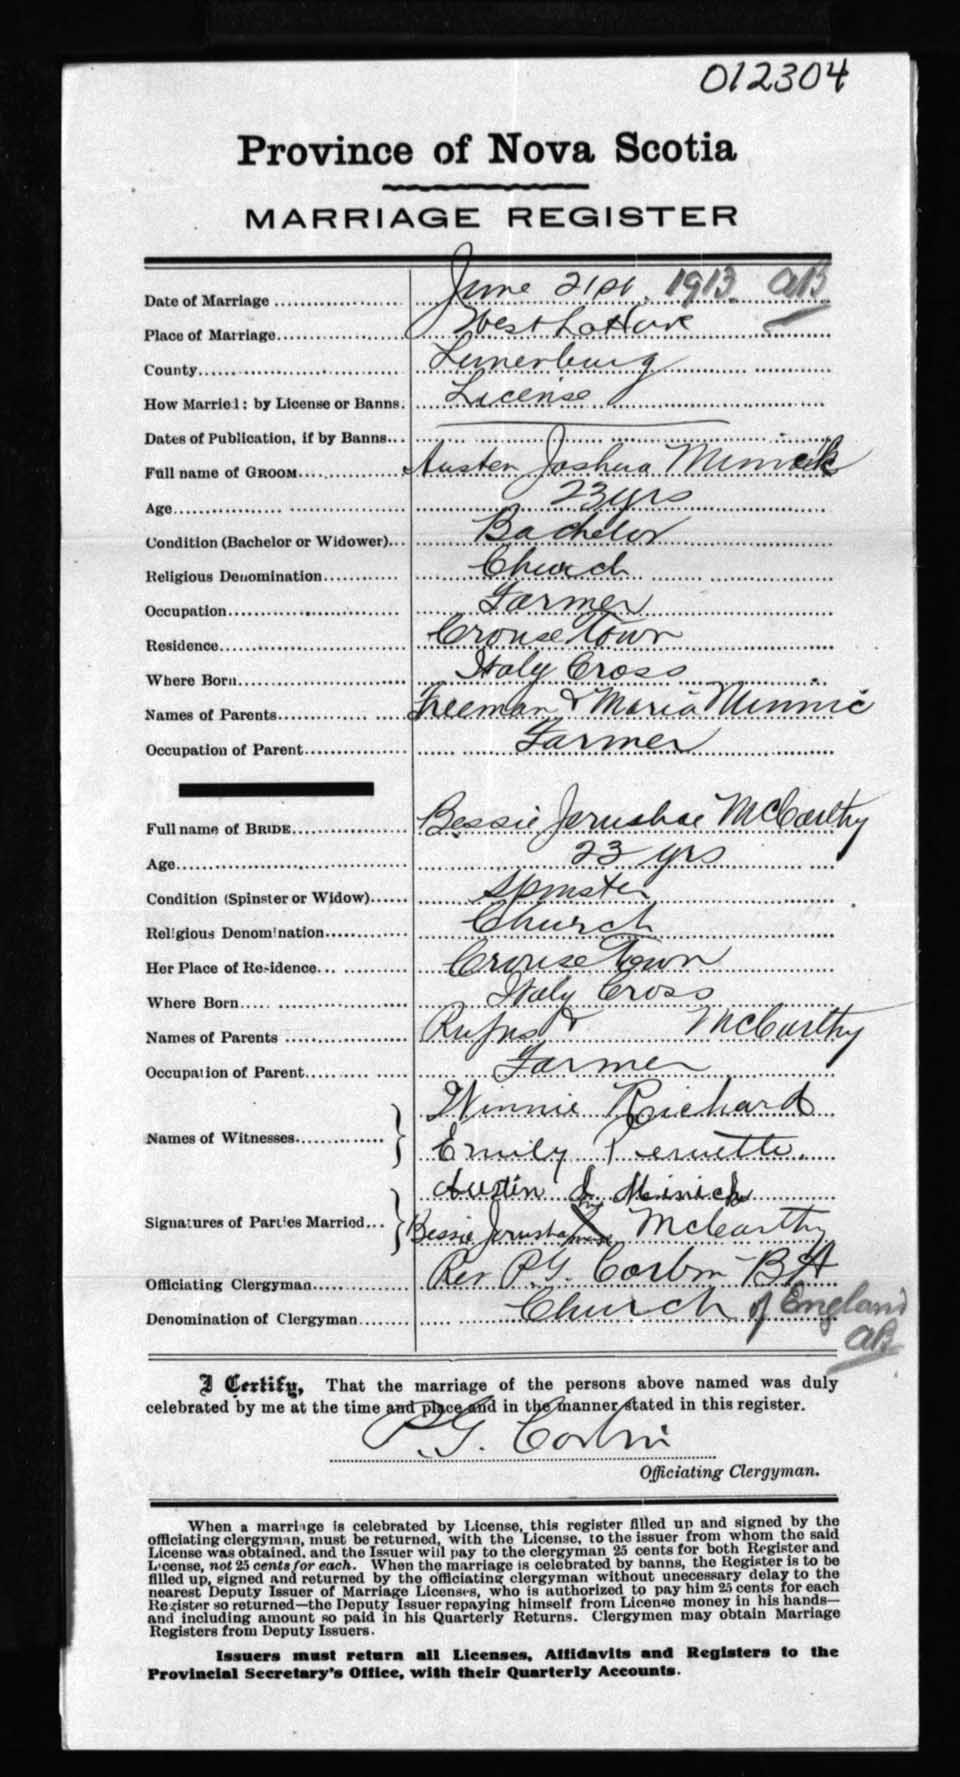 012304
Province of Nova Scotia
MARRIAGE REGISTER
Date of Marriage June 21st. 1913. AB
Place of Marriage West LaHave
County Lunenburg
How Married: by License or Banns. License
Dates of Publication, if by Banns
Full name of GROOM Austen Joshua
Age 23 yrs
Condition (Bachelor or Widower) Bachelor
Religious Denomination Church
Occupation Farmer
Residence Crouse Town
Where Born Italy Cross
Names of Parents Freeman & Maria Minnic
Occupation of Parent Farmer
Full name of BRIDE Bessie Jerushae McCarthy
Age 23 yrs
Condition (Spinster or Widow) Spinster
Religious Denomination Church
Her Place of Residence Crouse Town
Where Born Italy Cross
Names of Parents Rufus & McCarthy
Occupation of Parent Farmer
Names of Witnesses Winnie Richard
Emily
Signatures of Parties Married Austin J Minick
Bessie Jerusha X McCarthy
Officiating Clergyman Rev P.G. Corbin BA
Denomination of Clergyman Church of England
AB
I Certify, That the marriage of the persons above named was duly
celebrated by me at the time and place and in the manner stated in this register.
P.G. Corbin
Officiating Clergyman.
When a marriage is celebrated by License, this register filled up and signed by the
officiating clergyman, must be returned, with the License, to the issuer from whom the said
License was obtained, and the Issuer will pay to the clergyman 25 cents for both Register and
License, not 25 cents for each. When the marriage is celebrated by banns, the Register is to be
filled up, signed and returned by the officiating clergyman without unnecessary delay to the
nearest Deputy Issuer of Marriage Licenses, who is authorized to pay him 25 cents for each
Register so returned—the Deputy Issuer repaying himself from License money in his hands—
and including amount so paid in his Quarterly Returns. Clergymen may obtain Marriage
Registers from Deputy Issuers.
Issuers must return all Licenses, Affidavits and Registers to the
Provincial Secretary's Office, with their Quarterly Accounts.